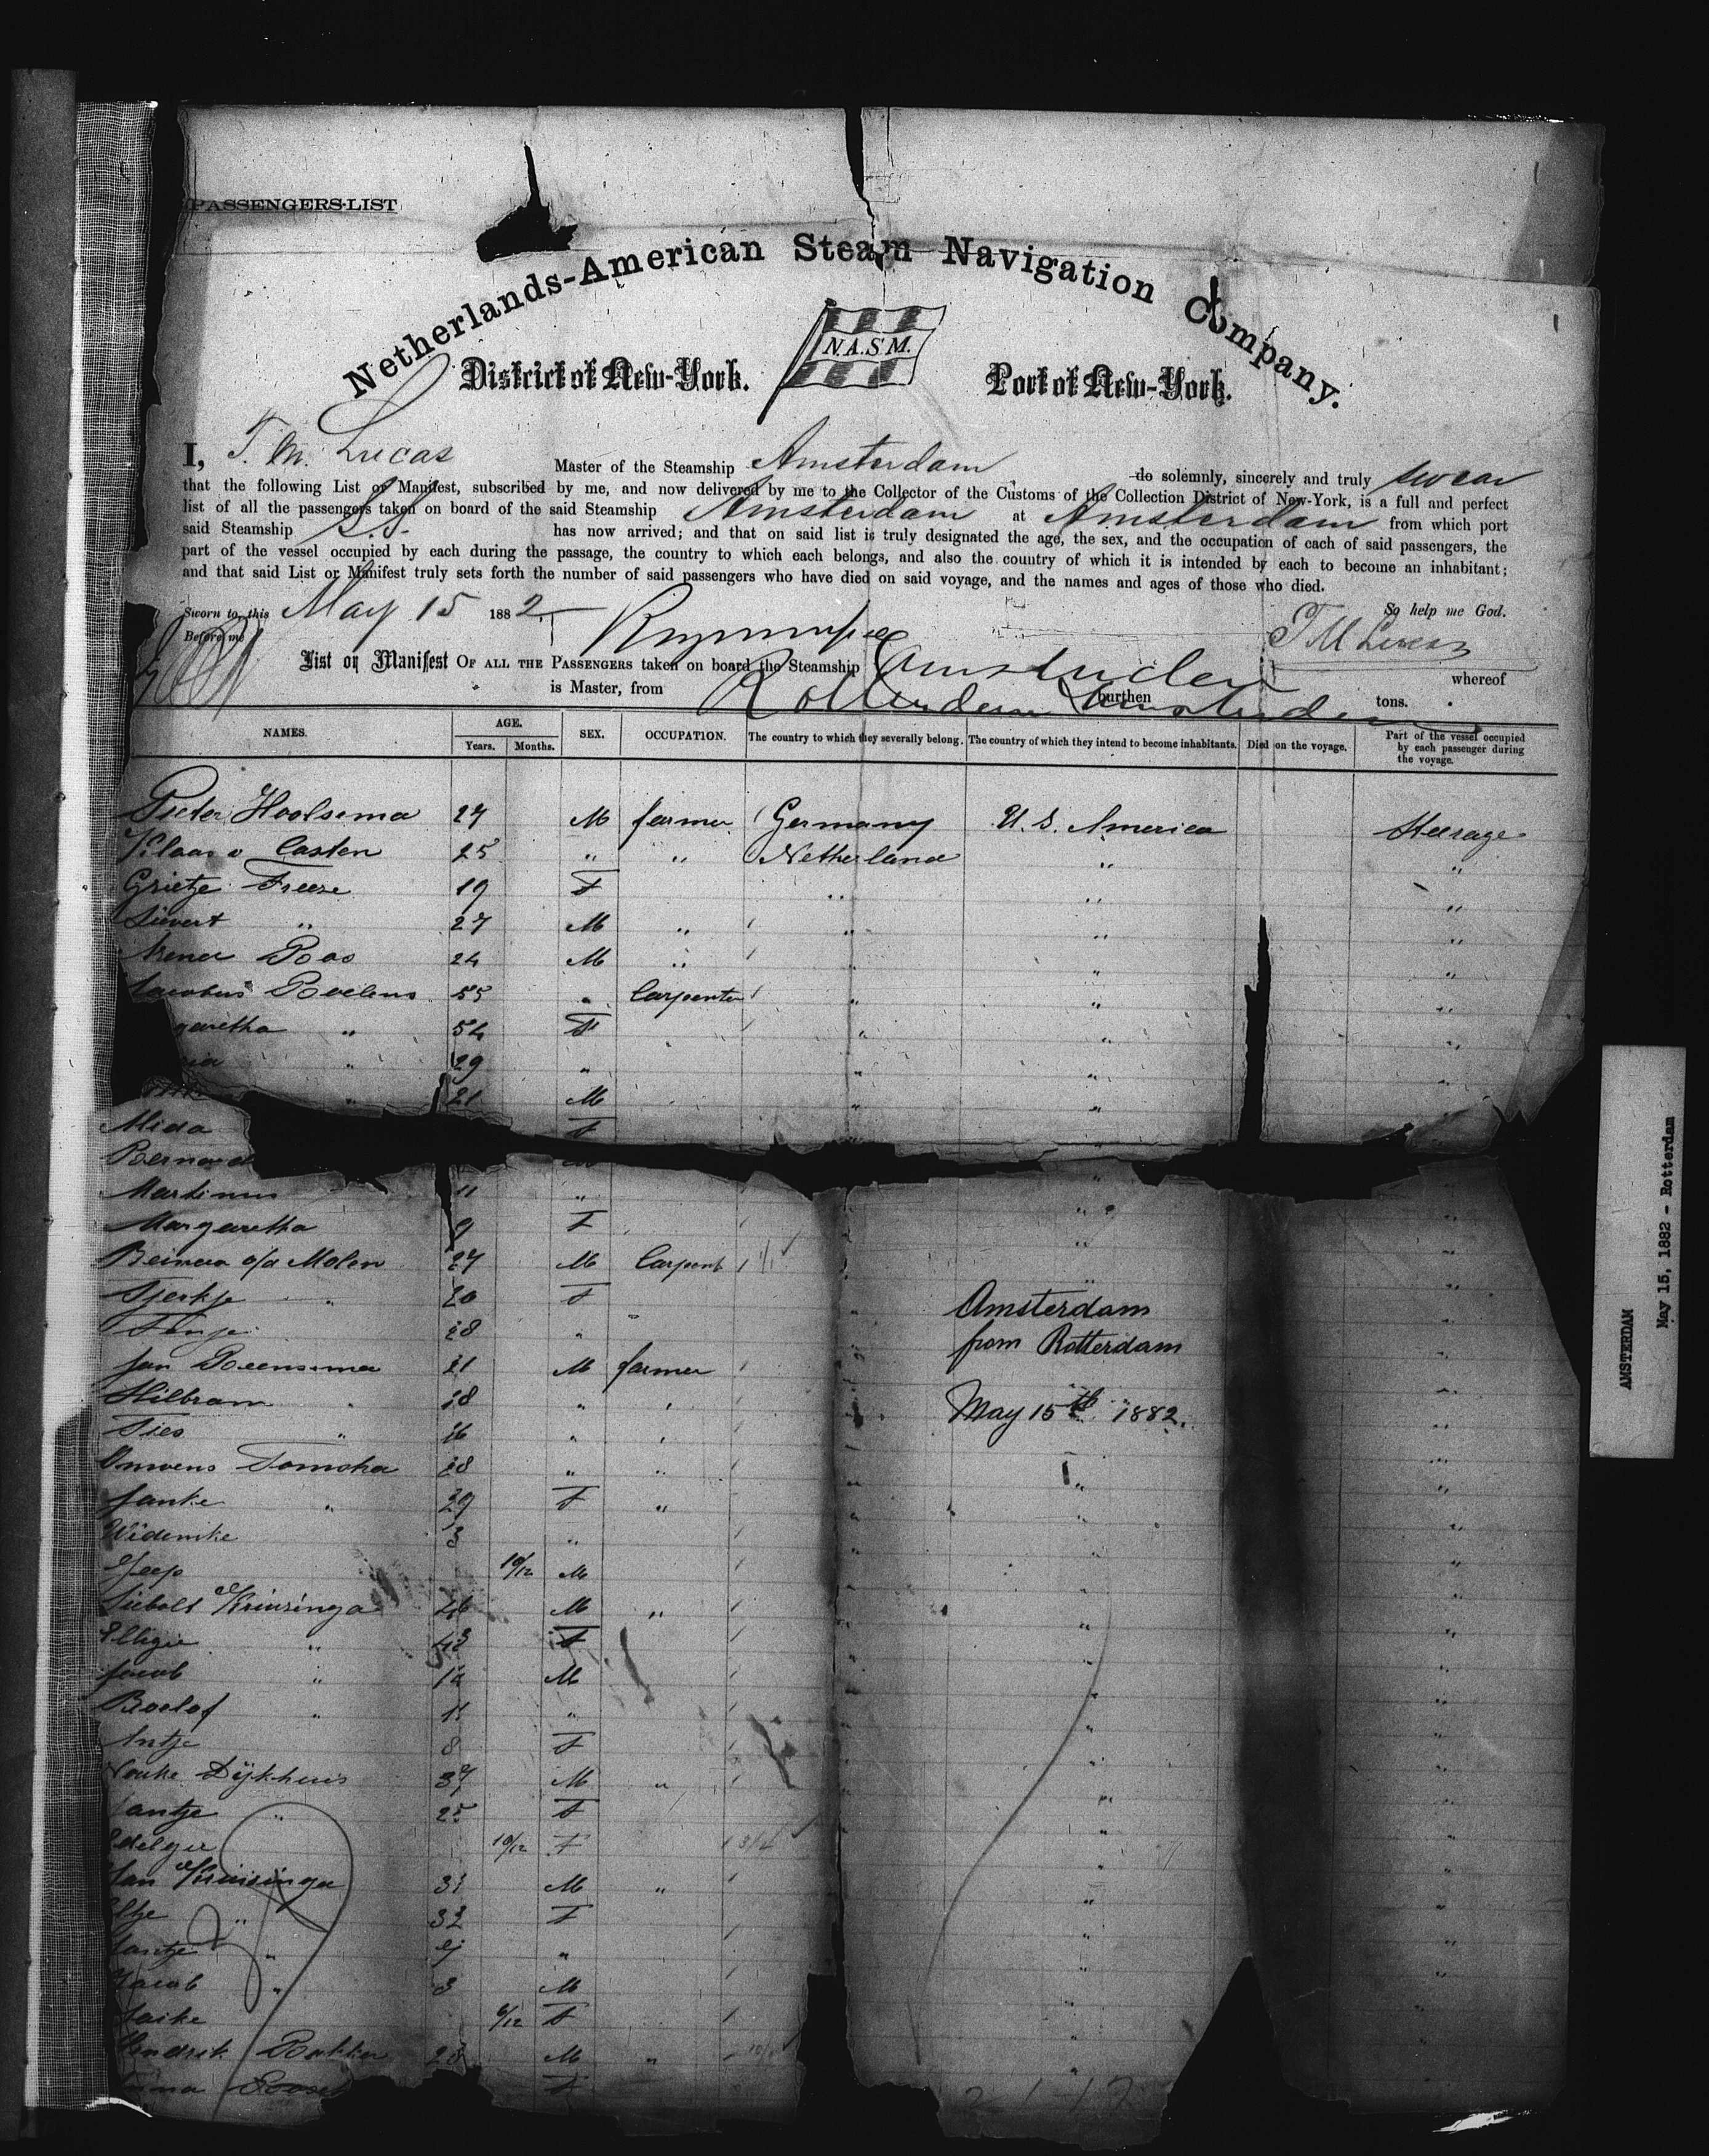 PASSENGERS-LIST
Netherlands-American Steam Navigation Company.
N.A.S.M.
District of New-York. Port of New-York.
I, T. M. Lucas Master of the Steamship Amsterdam do solemnly, sincerely and truly swear
that the following List or Manifest, subscribed by me, and now delivered by me to the Collector of the Customs of the Collection District of New-York, is a full and perfect
list of all the passengers taken on board of the said Steamship Amsterdam at Amsterdam from which port
said Steamship S.S. has now arrived; and that on said list is truly designated the age, the sex, and the occupation of each of said passengers, the
part of the vessel occupied by each during the passage, the country to which each belongs, and also the country of which it is intended by each to become an inhabitant;
and that said List or Manifest truly sets forth the number of said passengers who have died on said voyage, and the names and ages of those who died.
Sworn to, this May 15 1882. So help me God.
Before me T M Lucas
List or Manifest OF ALL THE PASSENGERS taken on board the Steamship Amsterdam whereof
is Master, from Rotterdam Amsterdam burthen tons.
NAMES. AGE. Years. Months. SEX. OCCUPATION. The country to which they severally belong. The country of which they intend to become inhabitants. Died on the voyage. Part of the vessel occupied by each passenger during the voyage.
Pieter Hoolsema 27 M farmer Germany U.S. America Steerage
Klaas v Casten 25 " " Netherland " "
Grietje Freese 19 F " " "
Sievert " 27 M " " " "
Arend Roos 24 M " " " "
Jacobus Roelens 55 " Carpenter " " "
garetha " 54 F " " "
ria " 29 " " " "
" 21 M " " "
Alida F " "
Bernard
Martinus 11 " " "
Margaretha 9 F " "
Reinera v/d Molen 27 M Carpent " "
Tjerkje " 20 F "
Amsterdam
from Rotterdam
Fenje 18 " "
Jan Reensema 21 M farmer " "
Hilbram " 18 " " " "
May 15th 1882.
Sies " 16 " " "
Onwens Tomoka 28 " " " "
Janke " 29 F " " "
Widemke 3 " " "
Jeep 10/12 M " "
Siebolt Kruizinga 46 M " " "
Eltjie " 43 F " "
Jacob " 12 M " "
Roelof " 11 " " "
Antje 8 F " "
Nouke Dijkhuis 37 M " " "
Jantje " 25 F " "
Edelgie 10/12 F " "
Jan Kruisinga 31 M " " "
Eltje " 32 F " "
Jantje " " " "
Jacob " 3 M " "
Jaike 6/12 F " "
Hendrik Bakker 28 M " " "
F
AMSTERDAM
May 15, 1882 - Rotterdam